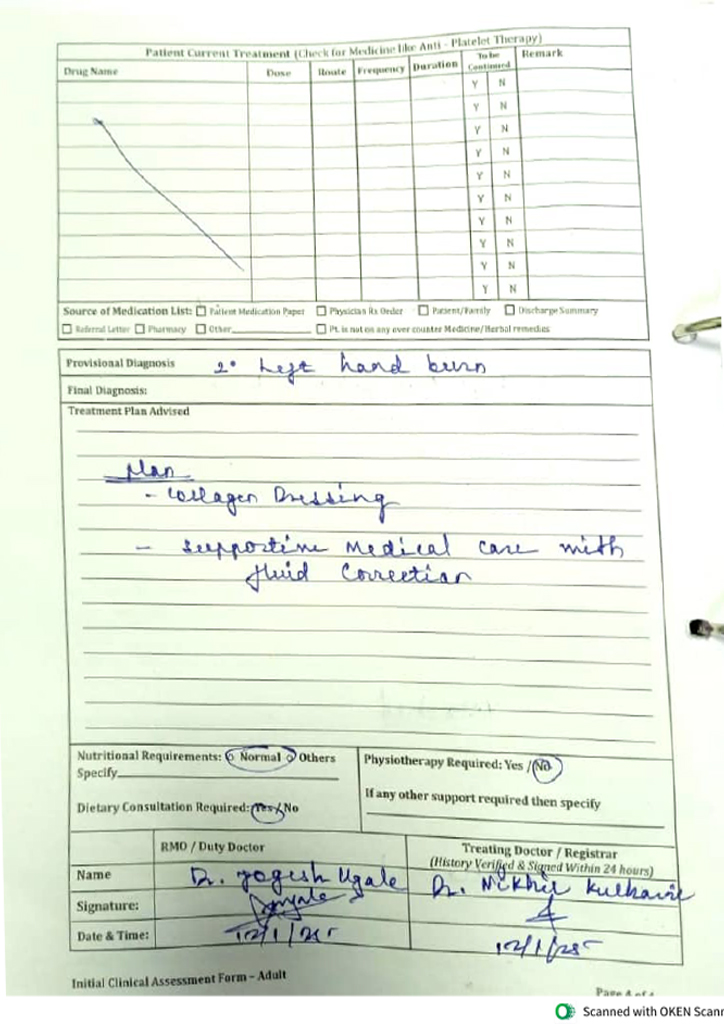 Patient Current Treatment (Check for Medicine like Anti - Platelet Therapy)
Drug Name Dose Route Frequency Duration To be Continued Remark
Y N
Y N
Y N
Y N
Y N
Y N
Y N
Y N
Y N
Y N
Source of Medication List: ☐ Patient Medication Paper ☐ Physician Rx Order ☐ Patient/Family ☐ Discharge Summary
☐ Referral Letter ☐ Pharmacy ☐ Other ☐ Pt. is not on any over counter Medicine/Herbal remedies
Provisional Diagnosis 2° Left hand burn
Final Diagnosis:
Treatment Plan Advised
Plan
- Collagen Dressing
- Supportive Medical care with
fluid Correction
Nutritional Requirements: ○ Normal ○ Others
Specify
Physiotherapy Required: Yes / No
Dietary Consultation Required: Yes / No
If any other support required then specify
RMO / Duty Doctor
Treating Doctor / Registrar
(History Verified & Signed Within 24 hours)
Name Dr. Yogesh Ugale Dr. Nikhil Kulkarni
Signature:
Date & Time: 12/1/25 12/1/25
Initial Clinical Assessment Form – Adult
Page 4 of
Scanned with OKEN Scanner